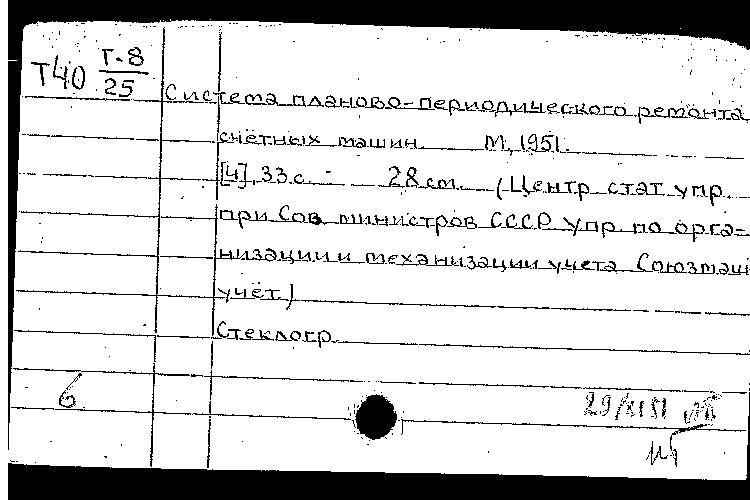 Т40 Т-8
25
Система планово-периодического ремонта
счётных машин. М, 1951.
[4], 33 с. - 28 см. (Центр стат упр.
при Сов. министров СССР Упр. по орга-
низации и механизации учета Союзмаш
учёт)
Стеклогр.
6